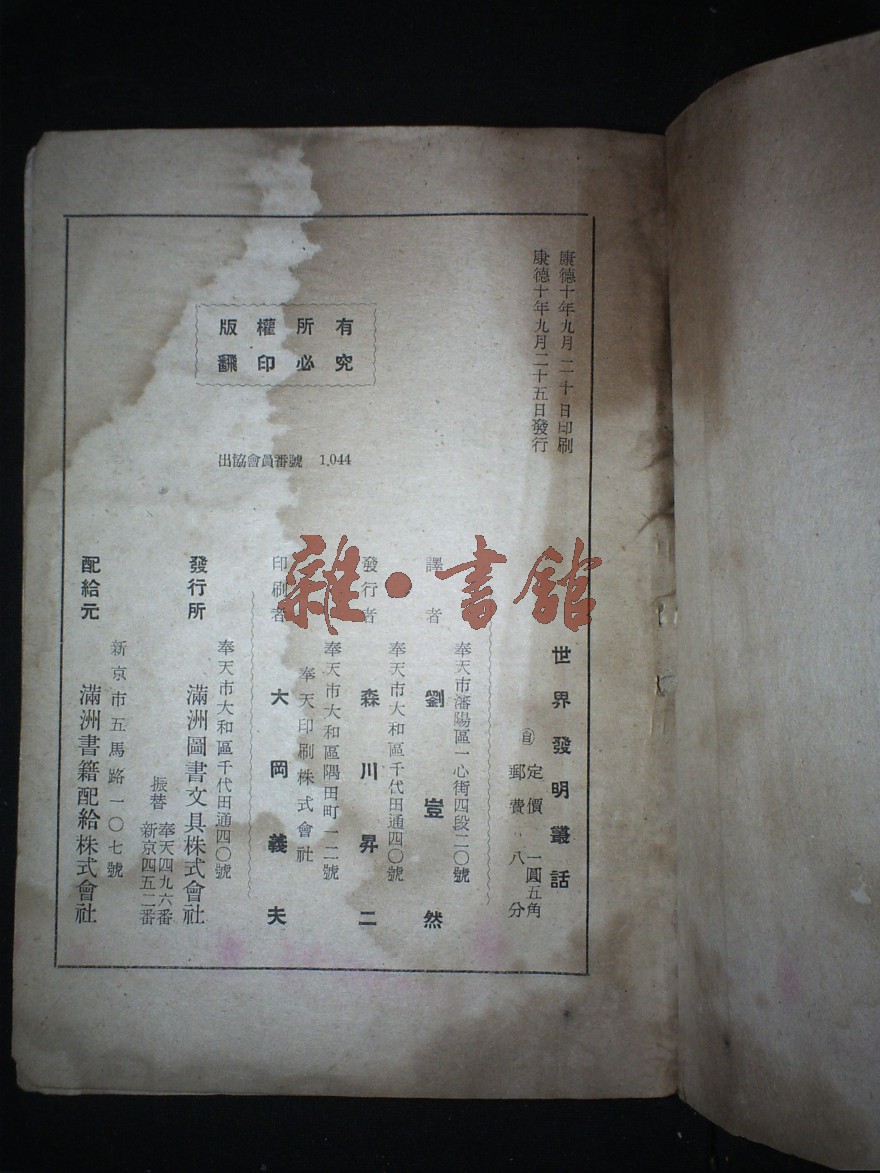 康德十年九月二十日印刷
康德十年九月二十五日發行
版權所有
翻印必究
出協會員番號 1,044
世界發明叢話
自 定價 一圓五角
郵費 八分
奉天市瀋陽區一心街四段二〇號
譯者 劉豈然
奉天市大和區千代田通四〇號
發行者 森川昇二
奉天市大和區隅田町一二號
奉天印刷株式會社
印刷者 大岡義夫
奉天市大和區千代田通四〇號
發行所 滿洲圖書文具株式會社
振替 奉天四九六番
新京四五二番
新京市五馬路一〇七號
配給元 滿洲書籍配給株式會社
雜·書館